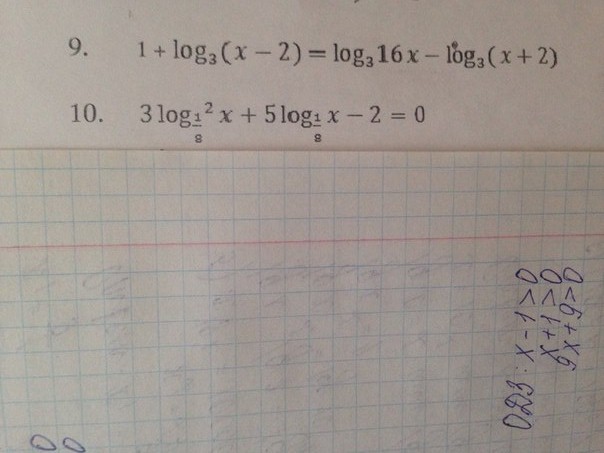 9. 1 + log₃(x − 2) = log₃16x − log₃(x + 2)
10. 3 log₁⁄₈² x + 5 log₁⁄₈ x − 2 = 0
ОДЗ: x − 1 > 0
x + 1 > 0
9x + 9 > 0
0
0